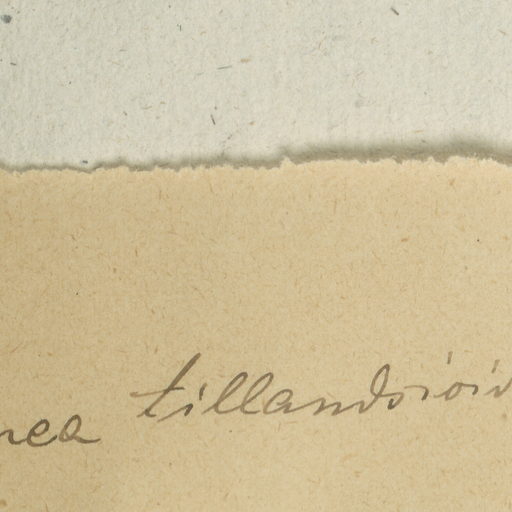 nea tillandsioid